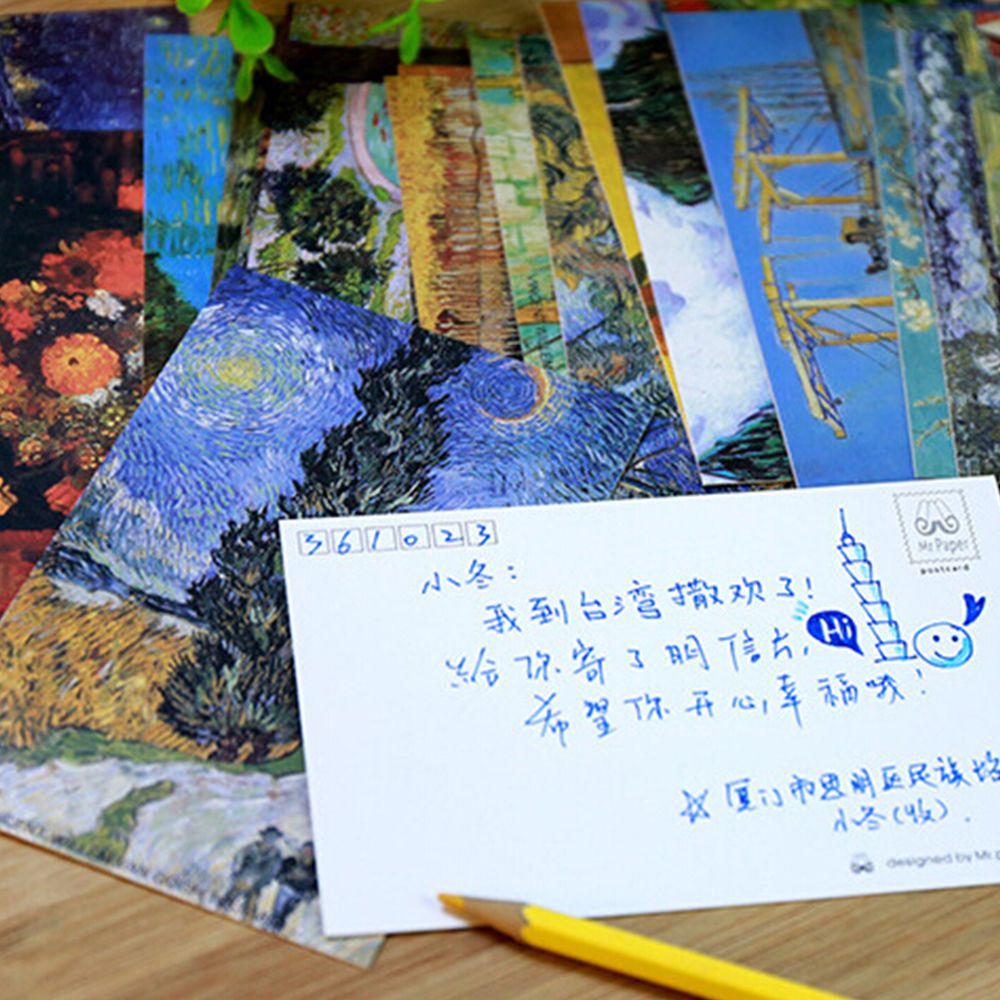 361023
Mr Paper
postcard
小冬：
我到台湾撒欢了！
Hi
给你寄了明信片，
希望你开心，幸福哦！
厦门市思明区民族路
小冬（收）.
designed by Mr. p